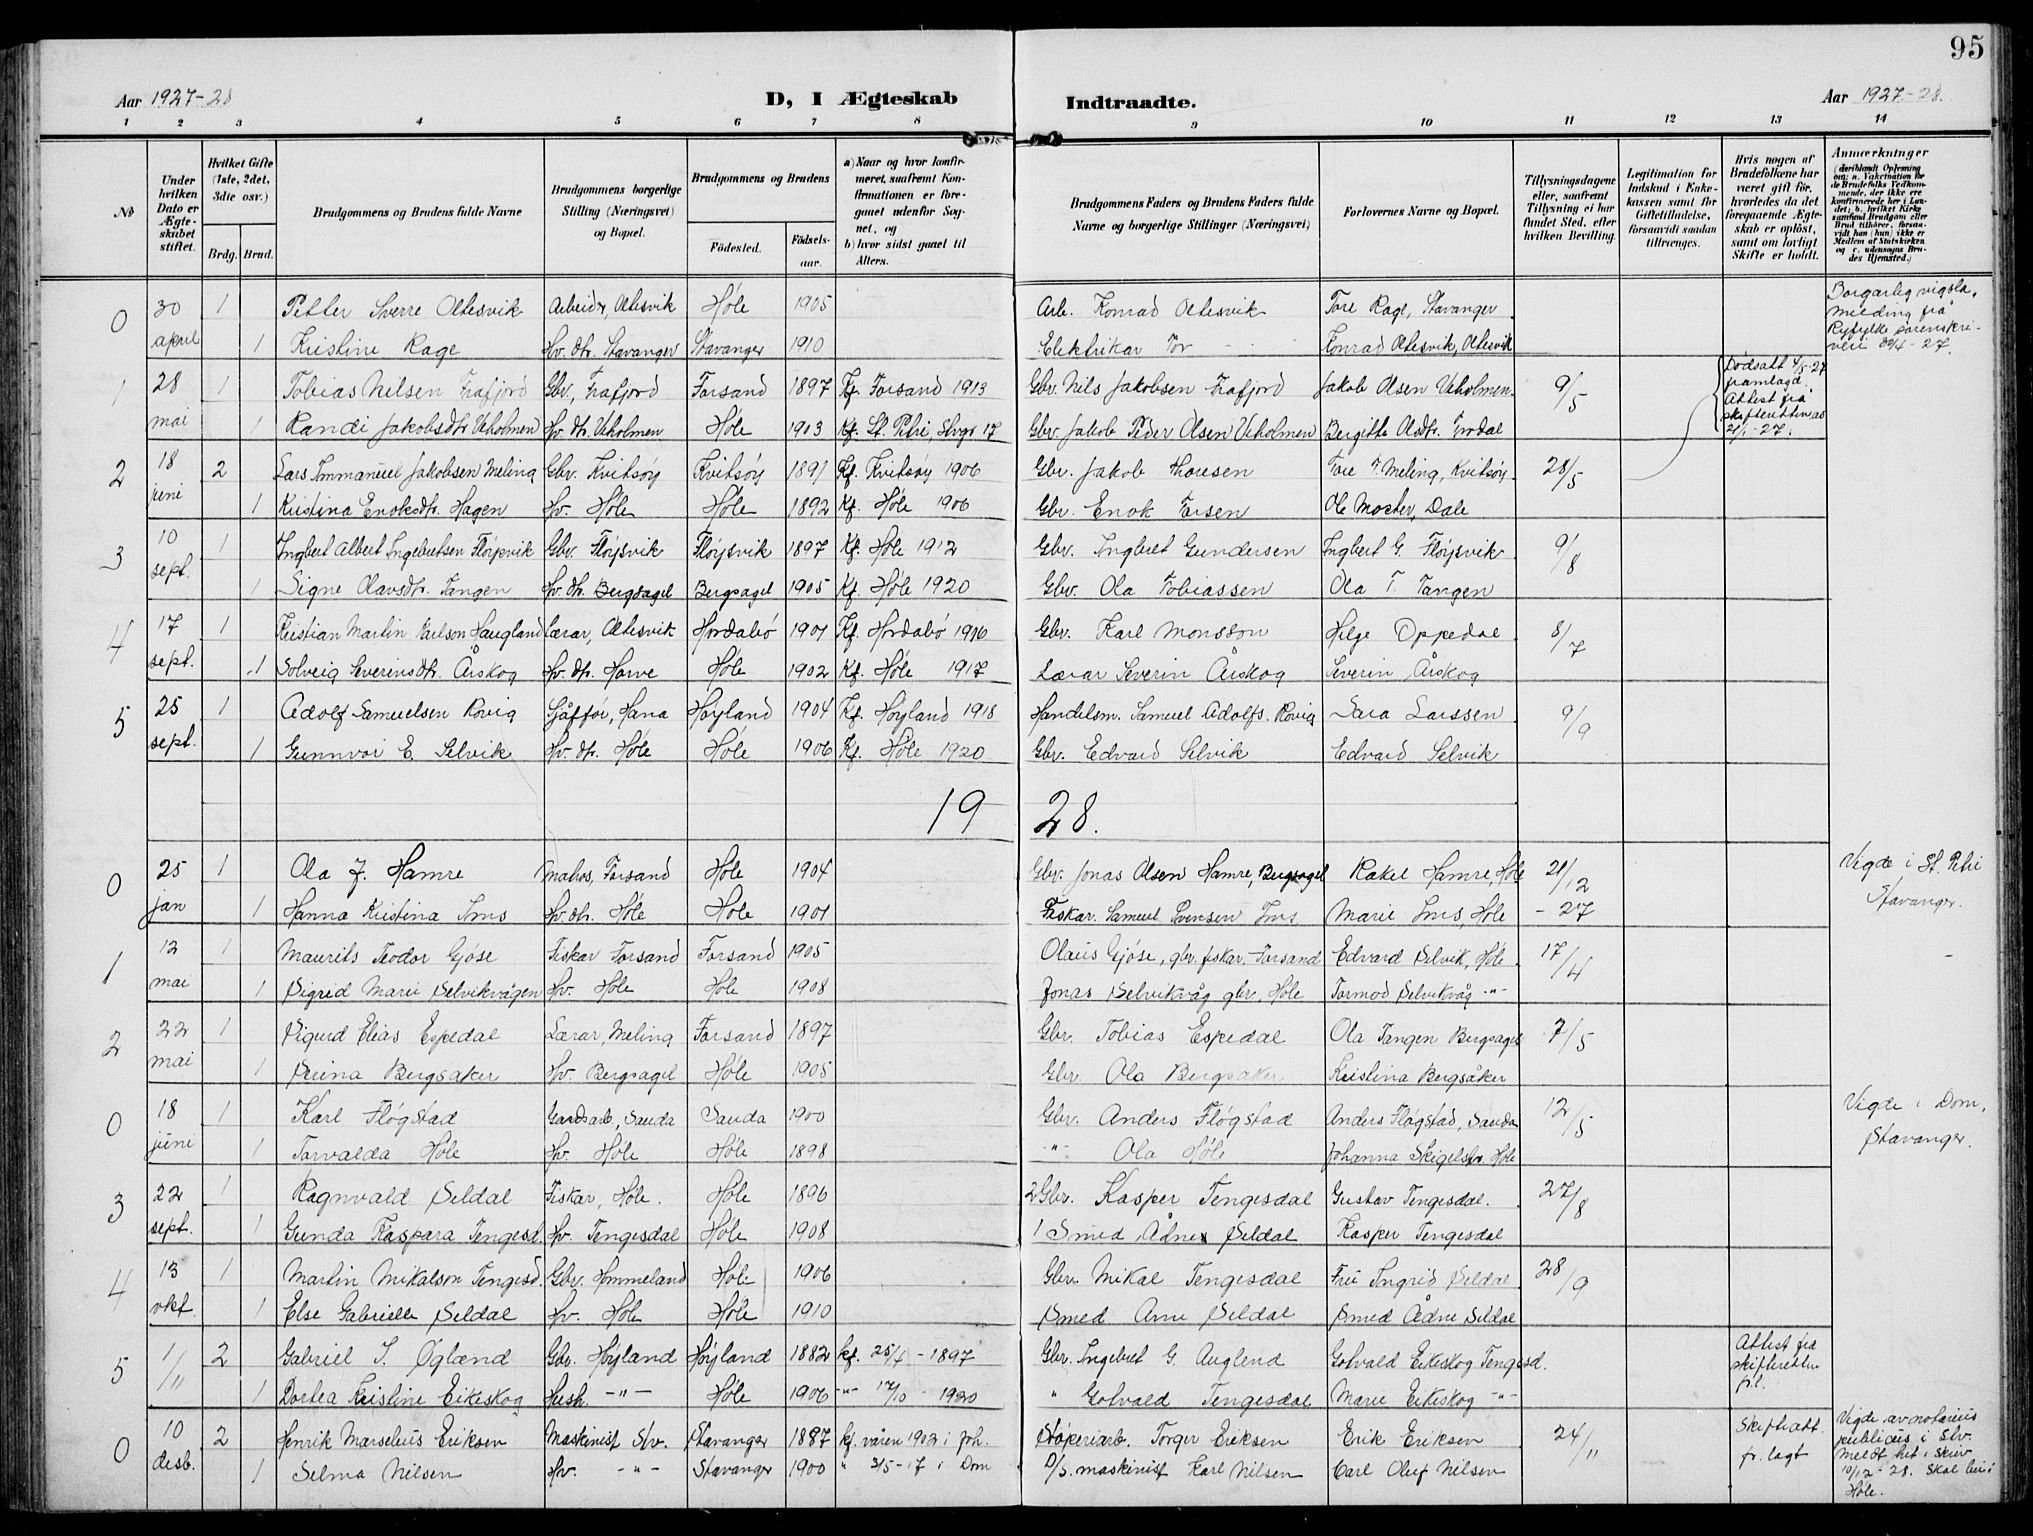 95
Aar 1927-28 D, I Ægteskab Indtraadte. Aar 1927-28.
1 2 3 4 5 6 7 8 9 10 11 12 13 14
No
Under hvilken Dato er Ægteskabet stiftet.
Hvilket Gifte (1ste, 2det, 3die osv.)
Brdg. Brud.
Brudgommens og Brudens fulde Navne
Brudgommens borgerlige Stilling (Næringsvei) og Bopæl.
Brudgommens og Brudens
Fødested. Fødselsaar.
a) Naar og hvor konfirmeret, saafremt Konfirmationen er foregaaet udenfor Sognet, og
b) hvor sidst gaaet til Alters.
Brudgommens Faders og Brudens Faders fulde Navne og borgerlige Stillinger (Næringsvei)
Forlovernes Navne og Bopæl.
Tillysningsdagene eller, saafremt Tillysning ei har fundet Sted, efter hvilken Bevilling.
Legitimation for Indskud i Enkekassen samt for Giftetilladelse, forsaavidt saadan tiltrænges.
Hvis nogen af Brudefolkene har været gift før, hvorledes da det foregaaende Ægteskab er opløst, samt om lovligt Skifte er holdt.
Anmærkninger
(deriblandt Oplysning om: a. Vakcination for de Brudefolks Vedkommende, der ikke ere konfirmerede her i Landet; b. hvilket Kirkesamfund Brudgom eller Brud tilhører, forsaavidt han (hun) ikke er Medlem af Statskirken og c. udensogns Brudes Hjemsted.)
0 30 april 1 Petter Sverre Oltesvik Arbeider, Oltesvik Høle 1905 Arb. Konrad Oltesvik Tore Rage, Stavanger Borgarleg vigsla, melding frå Ryfylke sorenskriveri 30/4-27.
1 Kristine Rage Hv. dtr. Stavanger Stavanger 1910 Elektrikar Tor - - Konrad Oltesvik, Oltesvik
1 28 mai 1 Tobias Nilsen Frafjord Gbr. Frafjord Forsand 1897 Kf. Forsand 1913 Gbr. Nils Jakobsen Frafjord Jakob Olsen Veholmen 9/5
1 Randi Jakobsdtr Veholmen Hv. dtr. Veholmen Høle 1903 Kf. St. Petri, Stvgr 17 Gbr. Jakob Peder Olsen Veholmen Bergitte Olsdtr.
2 18 juni 2 Lars Immanuel Jakobsen Meling Gbr. Kvitsøy Kvitsøy 1891 Kf. Kvitsøy 1906 Gbr. Jakob Thoresen Tore T. Meling, Kvitsøy 28/5 Dødsatt 4/5-27 framlagd. Attest frå skifteretten av 21/1-27.
1 Kristina Enoksdtr. Hagen Hv. Høle Høle 1892 Kf. Høle 1906 Gbr. Enok Tarsen Ole Moster, Dale
3 10 sept. 1 Ingbert Albert Ingebretsen Fløysvik Gbr. Fløysvik Fløysvik 1897 Kf. Høle 1912 Gbr. Ingbret Gundersen Ingbert G. Fløysvik 9/8
1 Signe Olavsdtr. Tangen Hv. dtr. Bergsagel Bergsagel 1905 Kf. Høle 1920 Gbr. Ola Tobiassen Ola T. Tangen
4 17 sept. 1 Kristian Martin Karlson Haugland Lærar, Oltesvik Hordabø 1901 Kf. Hordabø 1916 Gbr. Karl Monsson Helge Oppedal 8/7
1 Solveig Severinsdtr. Årskog Hv. dtr. Harve Høle 1902 Kf. Høle 1917 Lærar Severin Årskog Severin Årskog
5 25 sept. 1 Adolf Samuelsen Rovig Sjåffør, Hana Høyland 1904 Kf. Høyland 1918 Handelsm. Samuel Adolfs. Rovig Sara Larssen 9/9
1 Gunnvor E. Selvik Hv. dtr. Høle Høle 1906 Kf. Høle 1920 Gbr. Edvard Selvik Edvard Selvik
19 28.
0 25 jan 1 Ola J. Hamre Matros, Forsand Høle 1904 Gbr. Jonas Olsen Hamre, Bergsagel Rakel Hamre, Høle 21/12 Vigde i St. Petri Stavanger.
1 Hanna Kristina Ims Hv. dtr. Høle Høle 1901 Fiskar. Samuel Svensen Ims Marie Ims, Høle - 27
1 12 mai 1 Maurits Teodor Gjøse Fiskar Forsand Forsand 1905 Olaus Gjøse, gbr. fiskar. Forsand Edvard Selvik, Høle 17/4 -
1 Sigrid Marie Selvikvågen Hv. Høle Høle 1908 Jonas Selvikvåg gbr, Høle Tormod Selvikvåg -"-
2 22 mai 1 Sigurd Elias Espedal Lærar, Meling Forsand 1897 Gbr. Tobias Espedal Ola Tangen Bergsagel 7/5
1 Serina Bergsaker Hv. Bergsagel Høle 1905 Gbr. Ola Bergsaker Kristina Bergsåker
0 18 juni 1 Karl Fløgstad Gardsarb., Sauda Sauda 1900 Gbr. Anders Fløgstad Anders Fløgstad, Sauda 12/5 Vigde i Dom, Stavanger.
1 Torvalda Høle Hv. Høle Høle 1898 -"- Ola Høle Johanna Høle
3 22 sept. 1 Ragnvald Seldal Fiskar, Høle. Høle 1896 2 Gbr. Kasper Tengesdal Gustav Tengesdal. 27/8
1 Gunda Kaspara Tengesd. Hv. Tengesdal Høle 1908 1 Smed Ådne Seldal Kasper Tengesdal
4 13 okt. 1 Martin Mikalson Tengesd. Gbr. Hommeland Høle 1906 Gbr. Mikal Tengesdal Fru Ingrid Seldal 28/9
1 Else Gabrielle Seldal Hv. Høle Høle 1910 Smed Arne Seldal Smed Ådne Seldal
5 1/11 2 Gabriel I. Øglænd Gbr. Høyland Høyland 1882 kf. 25/4 - 1897 Gbr. Ingebret G. Auglend Gotvald Eikeskog Tengesd. Attest frå skifteretten f.l.
1 Dortea Kristine Eikeskog Hush. -"- Høle 1906 -"- 17/10 - 1920 " Gotvald Tengesdal Marie Eikeskog -"-
0 10 desb. 2 Henrik Marselius Eriksen Maskinist Stv. Stavanger 1887 kf. våren 1902 i Joh. Støperiarb. Torger Eriksen Erik Eriksen 24/11 Skifteatt. fr. lagt Vigde av notarius publicus i Stv. Meldt hit i skriv 10/12-28. Skal bu i Høle.
1 Selma Nilsen Hv. -"- Stavanger 1900 " 3/5-17 i Dom D/S. maskinist Karl Nilsen Carl Oluf Nilsen